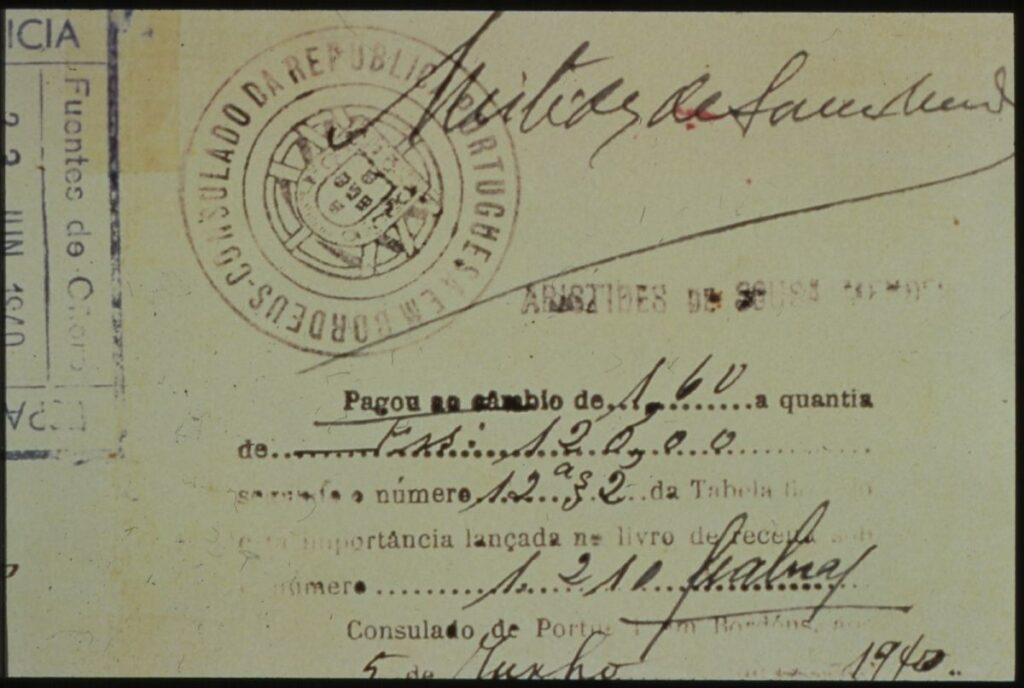 ICIA
Fuentes de Oñoro
22 JUN 1940
ESPA
CONSULADO DA REPUBLICA PORTUGUESA EM BORDEUS
Aristides de Sousa Mendes
ARISTIDES DE SOUSA MENDES
Pagou ao câmbio de 1,60 a quantia
de Frs: 120,00
segundo o número 12ª § 2 da Tabela
importância lançada no livro de receita sob
número 1.210
Consulado de Portugal em Bordéus, aos
5 de Junho 1940